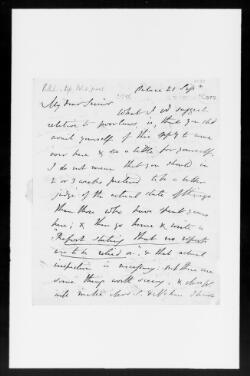 Palace 21 Sep.r
My dear Senior
What I wd suggest
relative to poor laws, is, that you shd
avail yourself of this oppty to come
over here & see a little for yourself.
I do not mean that you should in
2 or 3 weeks pretend to be a better
judge of the actual state of things
than those who have spent years
here; & then go home & write a
Report stating that no reports
are to be relied on, & that actual
inspection is necessary. But there are
some things worth seeing, & always
will make Mrs S. & Nelson I know